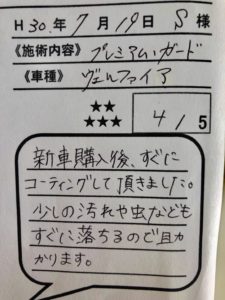 H30年7月19日 S 様
《施術内容》プレミアムガード
《車種》ヴェルファイア
★★
★★★
4/5
新車購入後、すぐに
コーティングして頂きました。
少しの汚れや虫なども
すぐに落ちるので助
かります。